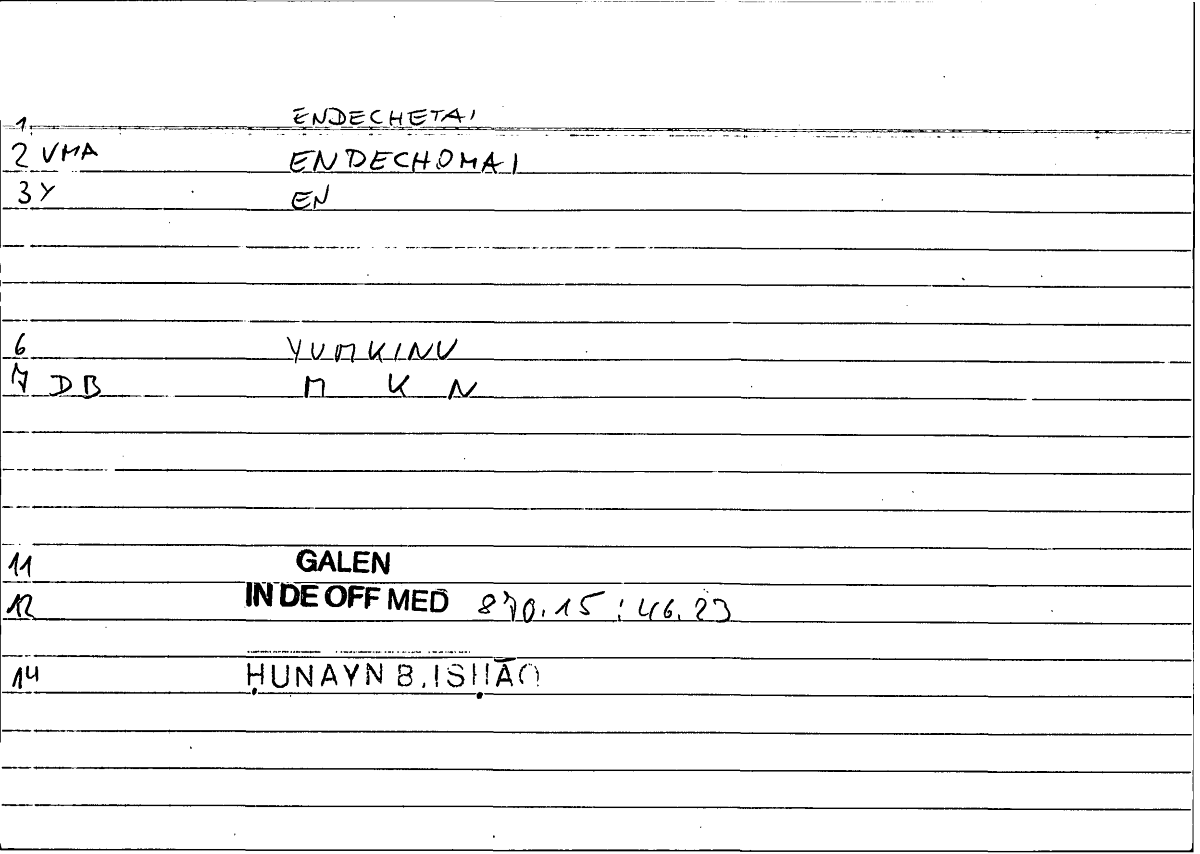 1. ENDECHETAI
2 VMA ENDECHOMAI
3 Y EN
6 YUMKINU
7 DB M K N
11 GALEN
12 IN DE OFF MED 870.15 : 46.23
14 ḤUNAYN B. ISḤĀQ